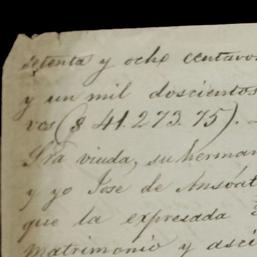 setenta y ocho centavos
y un mil doscientos
vos ($ 41.273.75).
Sra viuda, su herman
y yo Jose de Ansoat
que la expresada
Matrimonio y asci